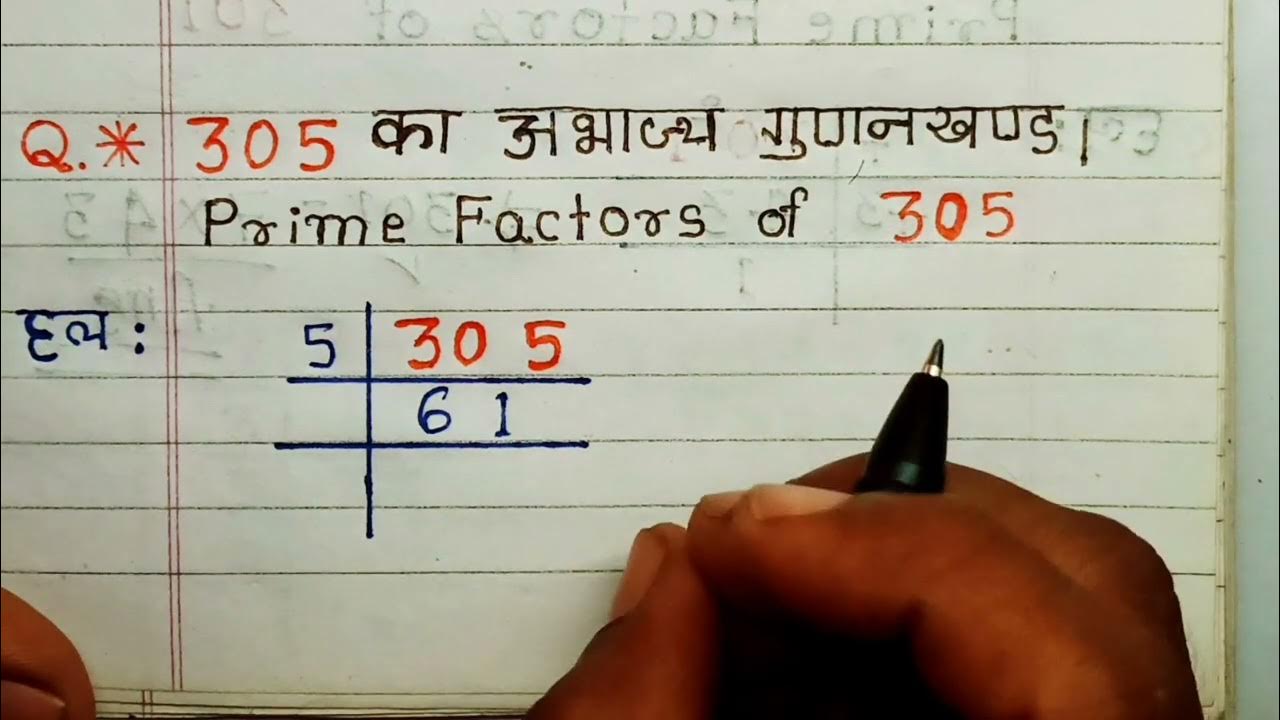 Q.* 305 का अभाज्य गुणनखण्ड।
Prime Factors of 305
हल :
5 | 305
61